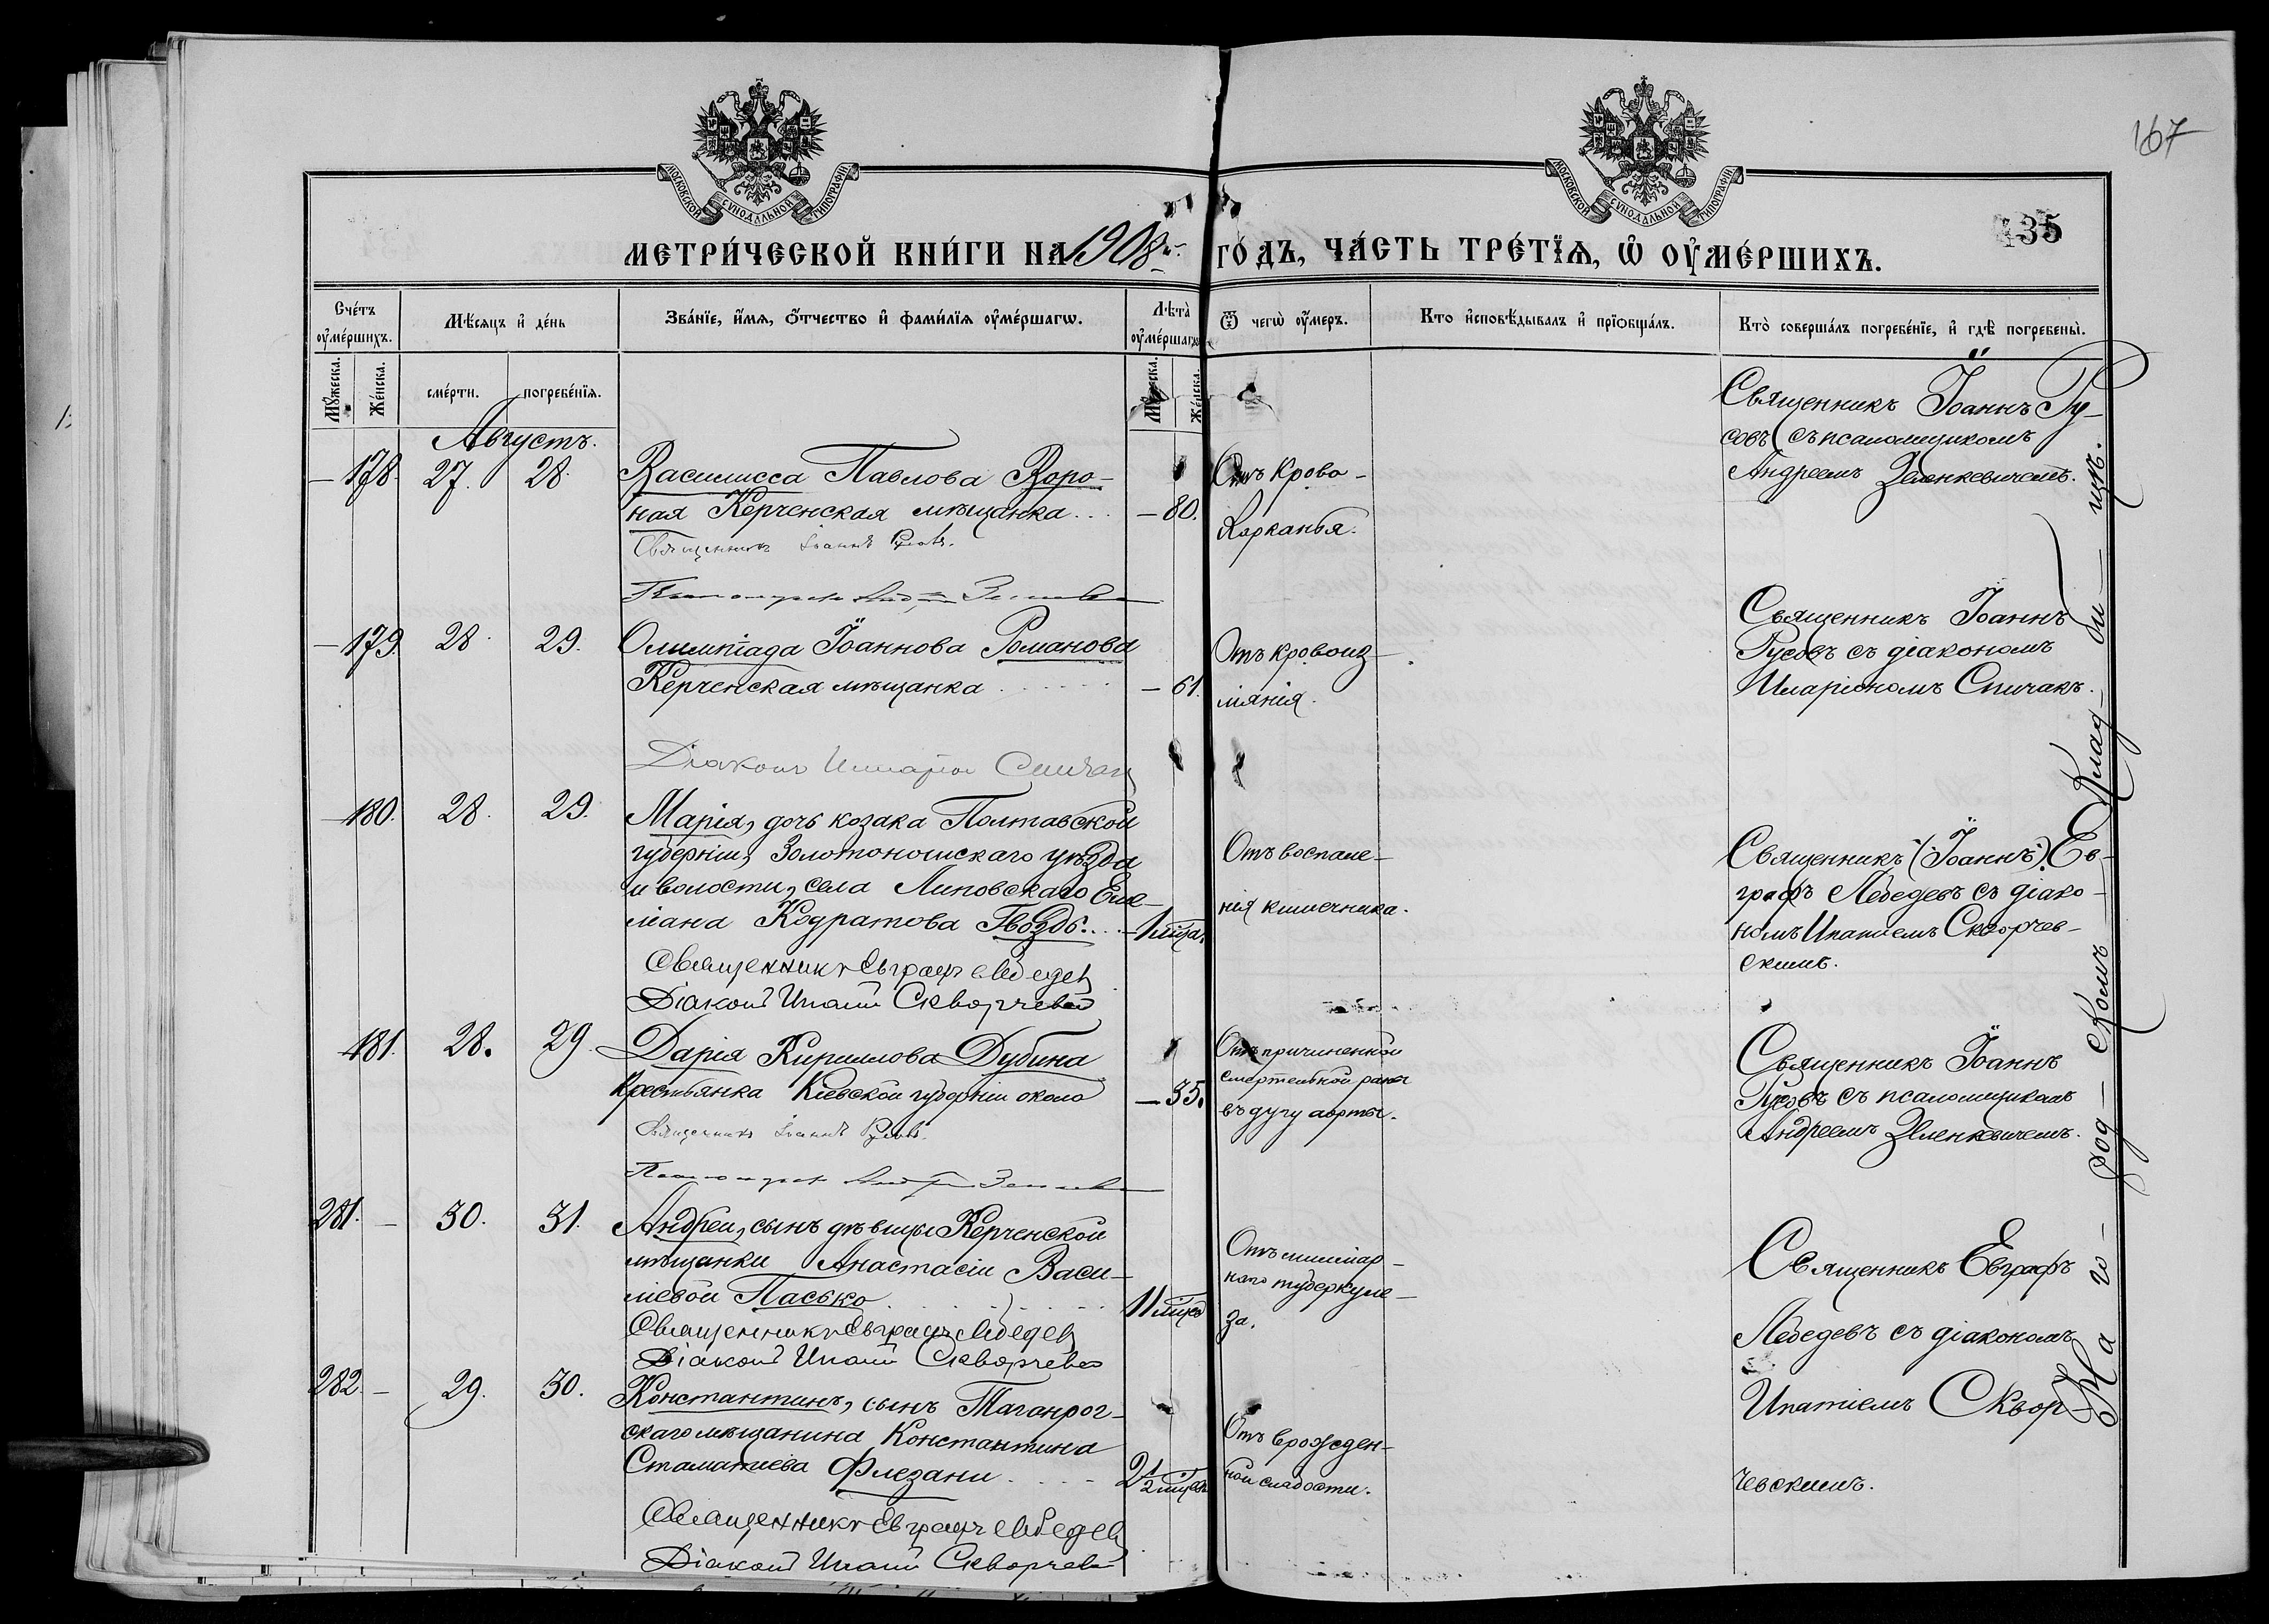 167
МОСКОВСКОЙ СѴНОДАЛЬНОЙ ТИПОГРАФІИ
МОСКОВСКОЙ СѴНОДАЛЬНОЙ ТИПОГРАФІИ
35
МЕТРИ́ЧЕСКОЙ КНИ́ГИ НА 1908й ГО́ДЪ, ЧА́СТЬ ТРЕ́ТЇѦ, Ѽ ОУ҆МЕ́РШИХЪ.
Сче́тъ оу҆ме́ршихъ.
Мѣ́сѧцъ и҆ де́нь
Зва́нїе, и҆́мѧ, ѻ҆́тчество и҆ фами́лїѧ оу҆ме́ршагѡ.
Лѣта̀ оу҆ме́ршагѡ
Ѿ чегѡ̀ оу҆́меръ.
Кто̀ и҆сповѣ́дывалъ и҆ прїѻбща́лъ.
Кто̀ соверша́лъ погребе́нїе, и҆ гдѣ̀ погребены̀.
Мꙋ́жеска.
Же́нска.
сме́рти.
погребе́нїѧ.
Мꙋ́жеска.
Же́нска.
Августъ.
— 178. 27. 28. Василисса Павлова Воро-
ная Керченская мѣщанка... — 80.
Священникъ Іоаннъ Гусовъ.
Отъ крово-
харканья.
Священникъ Іоаннъ Гу-
совъ съ псаломщикомъ
Андреемъ Зеленкевичемъ.
— 179. 28. 29. Олимпіада Іоаннова Романова
Керченская мѣщанка...... — 61.
Діаконъ Иларіон Спичак
Отъ кровоиз-
ліянія.
Священникъ Іоаннъ
Гусовъ съ діакономъ
Иларіономъ Спичакъ.
— 180. 28. 29. Марія, дочь козака Полтавской
губерніи, Золотоношскаго уѣзда
и волости, села Липовскаго Еме-
ліана Кодратова Гвоздь.... — 1 мѣсяца.
Священникъ Евграфъ Лебедев
Діаконъ Ипатій Скворчевс
Отъ воспале-
нія кишечника.
Священникъ (Іоаннъ) Ев-
графъ Лебедевъ съ діако-
номъ Ипатіемъ Скворчев-
скимъ.
— 181. 28. 29. Дарія Кириллова Дубина
Крестьянка Кіевской губерніи около — 35.
Священникъ Іоаннъ Гусовъ.
Отъ причиненной
смертельной раны
въ дугу аорты.
Священникъ Іоаннъ
Гусовъ съ псаломщикомъ
Андреемъ Зеленкевичемъ.
281. — 30. 31. Андрей, сынъ дѣвицы Керченской
мѣщанки Анастасіи Васи-
ліевой Пасько....... 11 мѣсяц
Священникъ Евграфъ Лебедев
Діаконъ Ипатій Скворчевс
Отъ миліар-
наго туберкуле-
за.
Священникъ Евграфъ
Лебедевъ съ діакономъ
Ипатіемъ Сквор-
чевскимъ.
282. — 29. 30. Константинъ, сынъ Таганрог-
скаго мѣщанина Константина
Стаматиева Флезани.... 2 1/2 мѣсяца
Священникъ Евграфъ Лебедев
Діаконъ Ипатій Скворчевс
Отъ врожден-
ной слабости.
На го-род-скомъ Клад-би-щѣ.